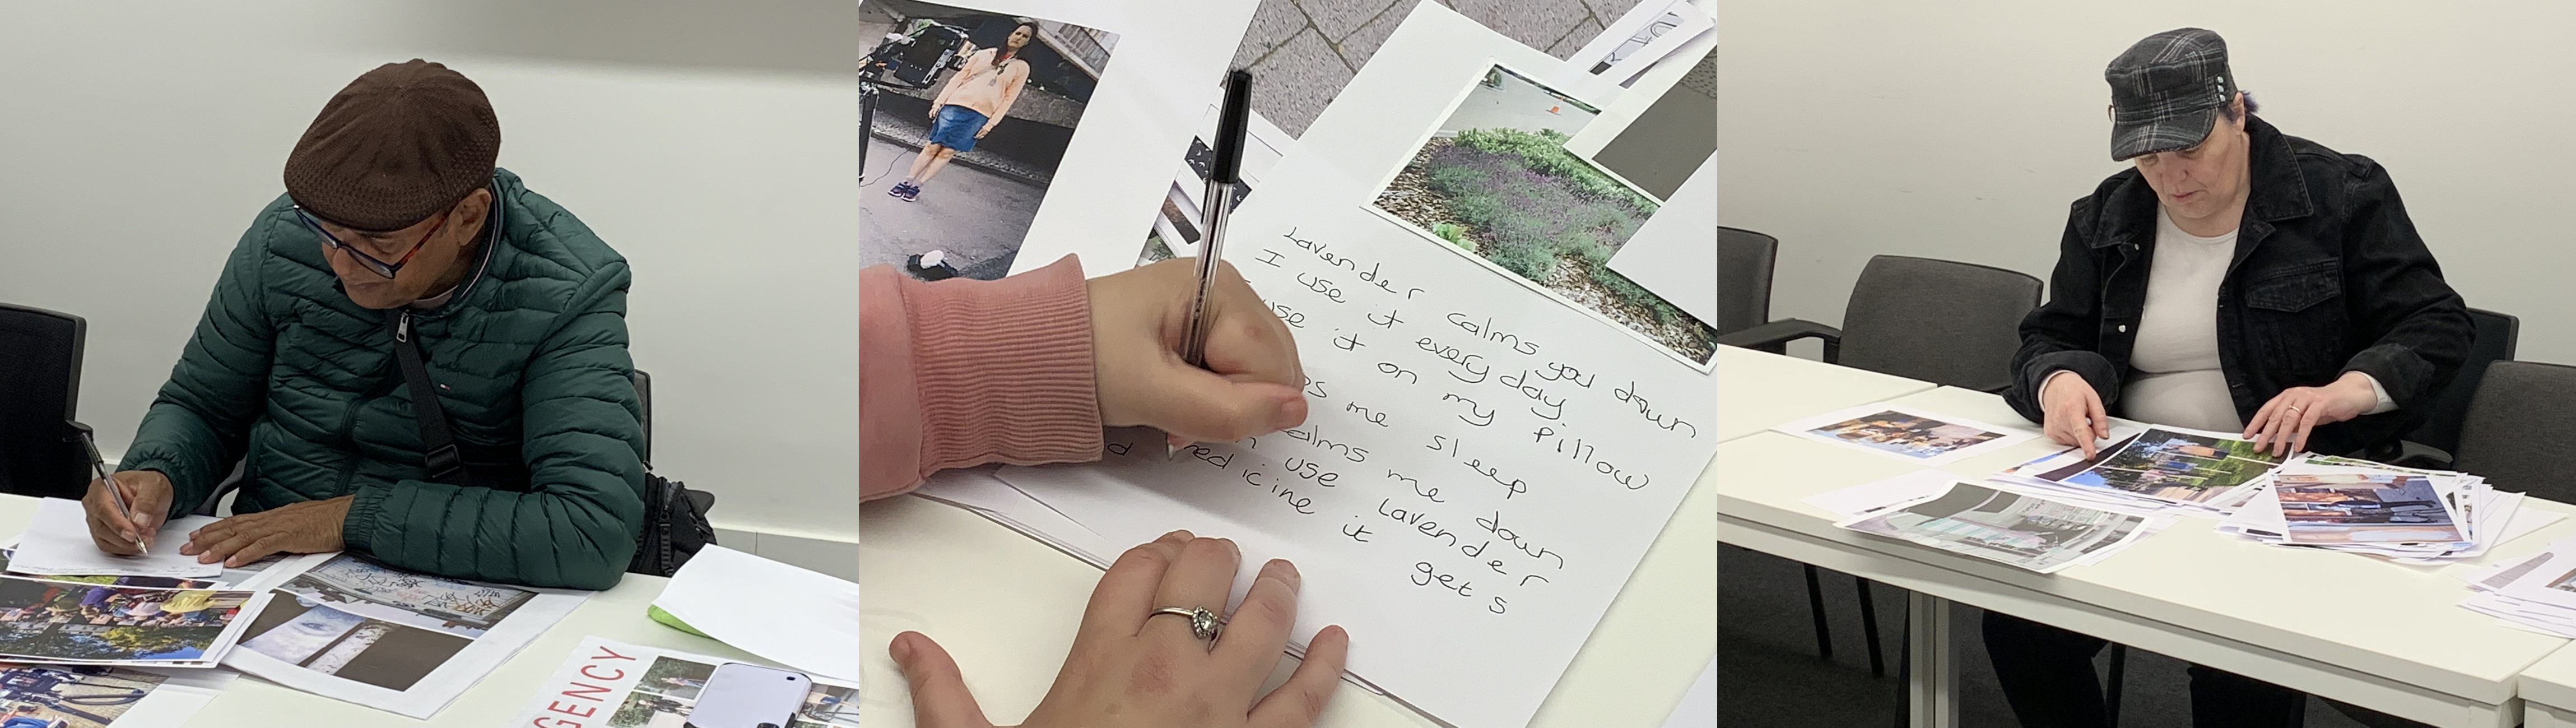 Lavender calms you down
I use it every day
use it on my pillow
me sleep
calms me down
use Lavender
medicine it get s
GENCY